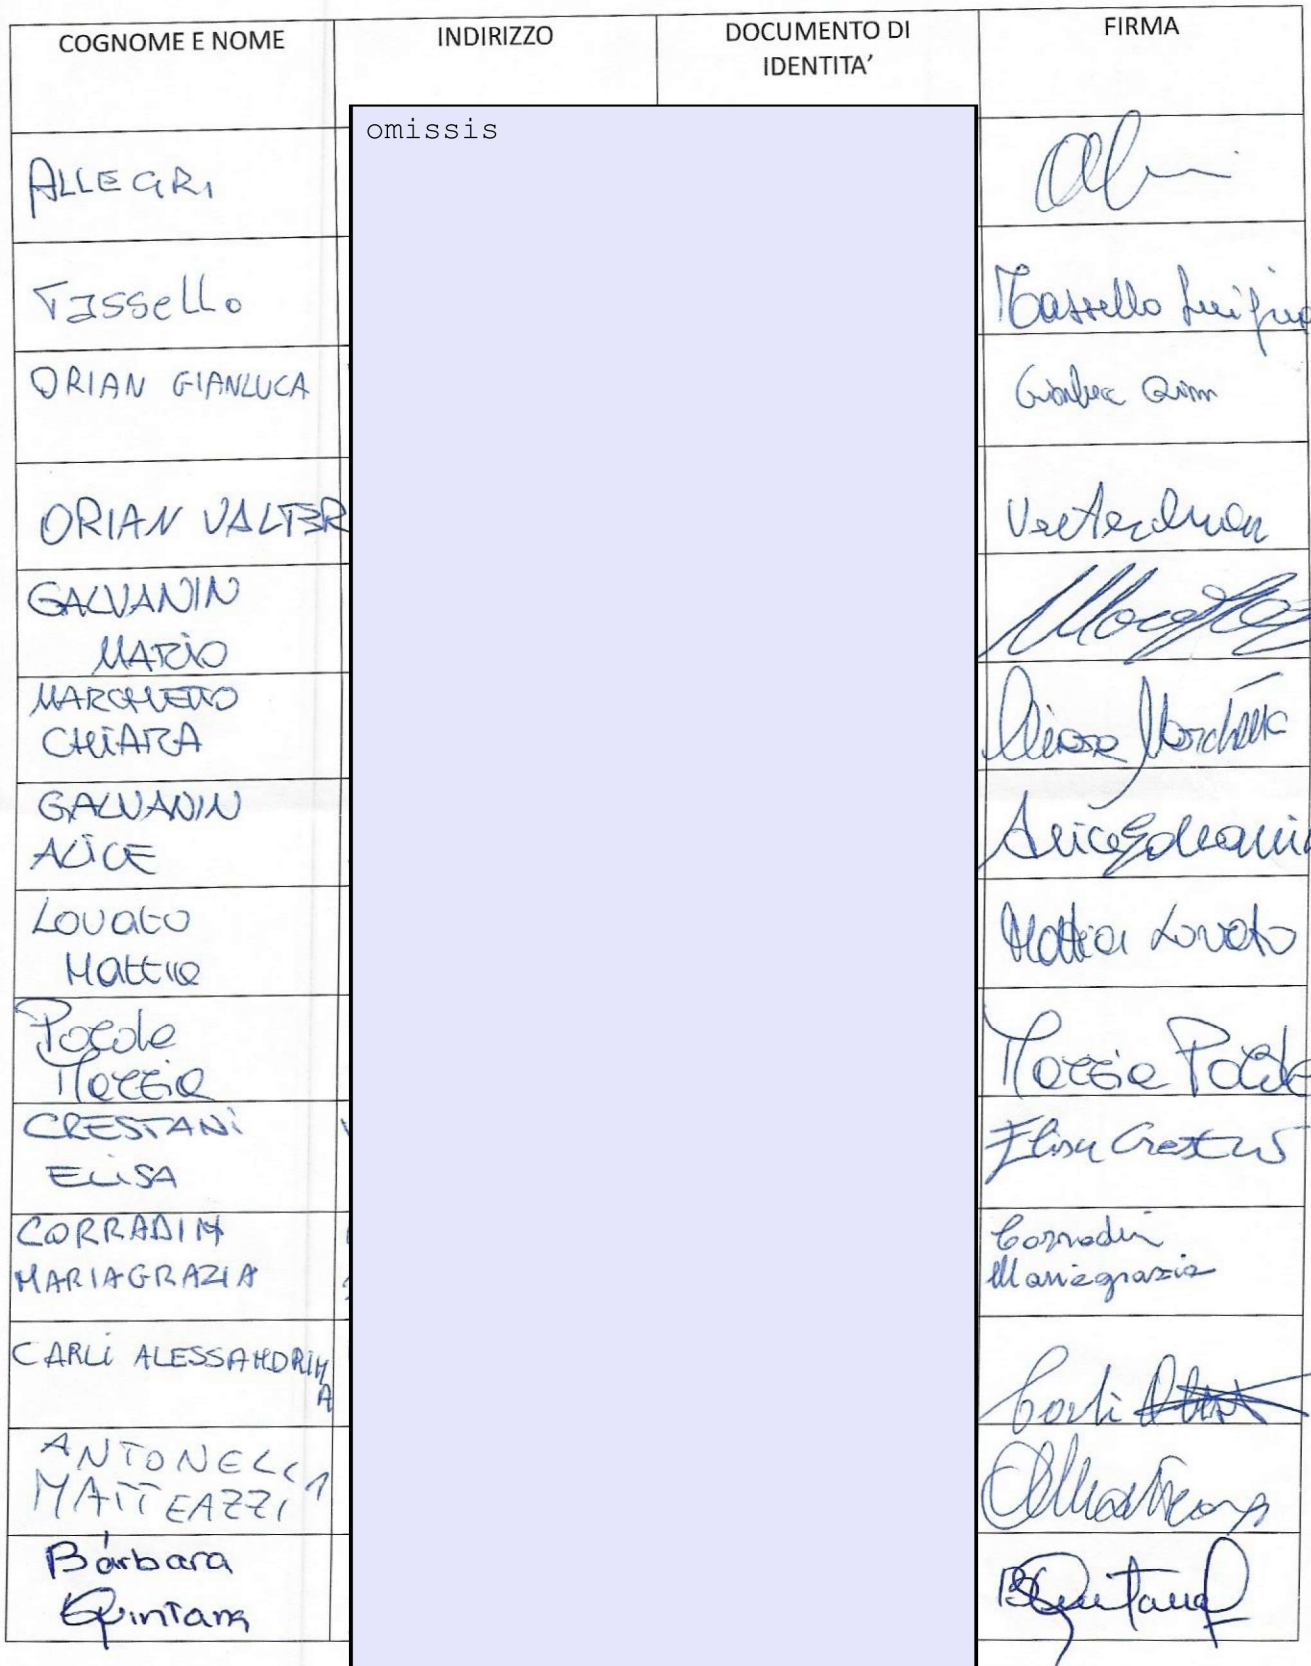 COGNOME E NOME
INDIRIZZO
DOCUMENTO DI
IDENTITA'
FIRMA
omissis
ALLEGRI
Tassello
Tassello
ORIAN GIANLUCA
Gianluca
ORIAN VALTER
GALVANIN
MARIO
MARCHETTO
CHIARA
Chiara Marchetto
GALVANIN
ALICE
Alice Galvanin
Lovato
Mattia
Mattia Lovato
CRESTANI
ELISA
Elisa Crestani
CORRADIN
MARIAGRAZIA
Corradin
Mariagrazia
CARLI ALESSANDRIN
A
Carli
ANTONELLA
MATTEAZZI
Bárbara
Quintana
BQuintana